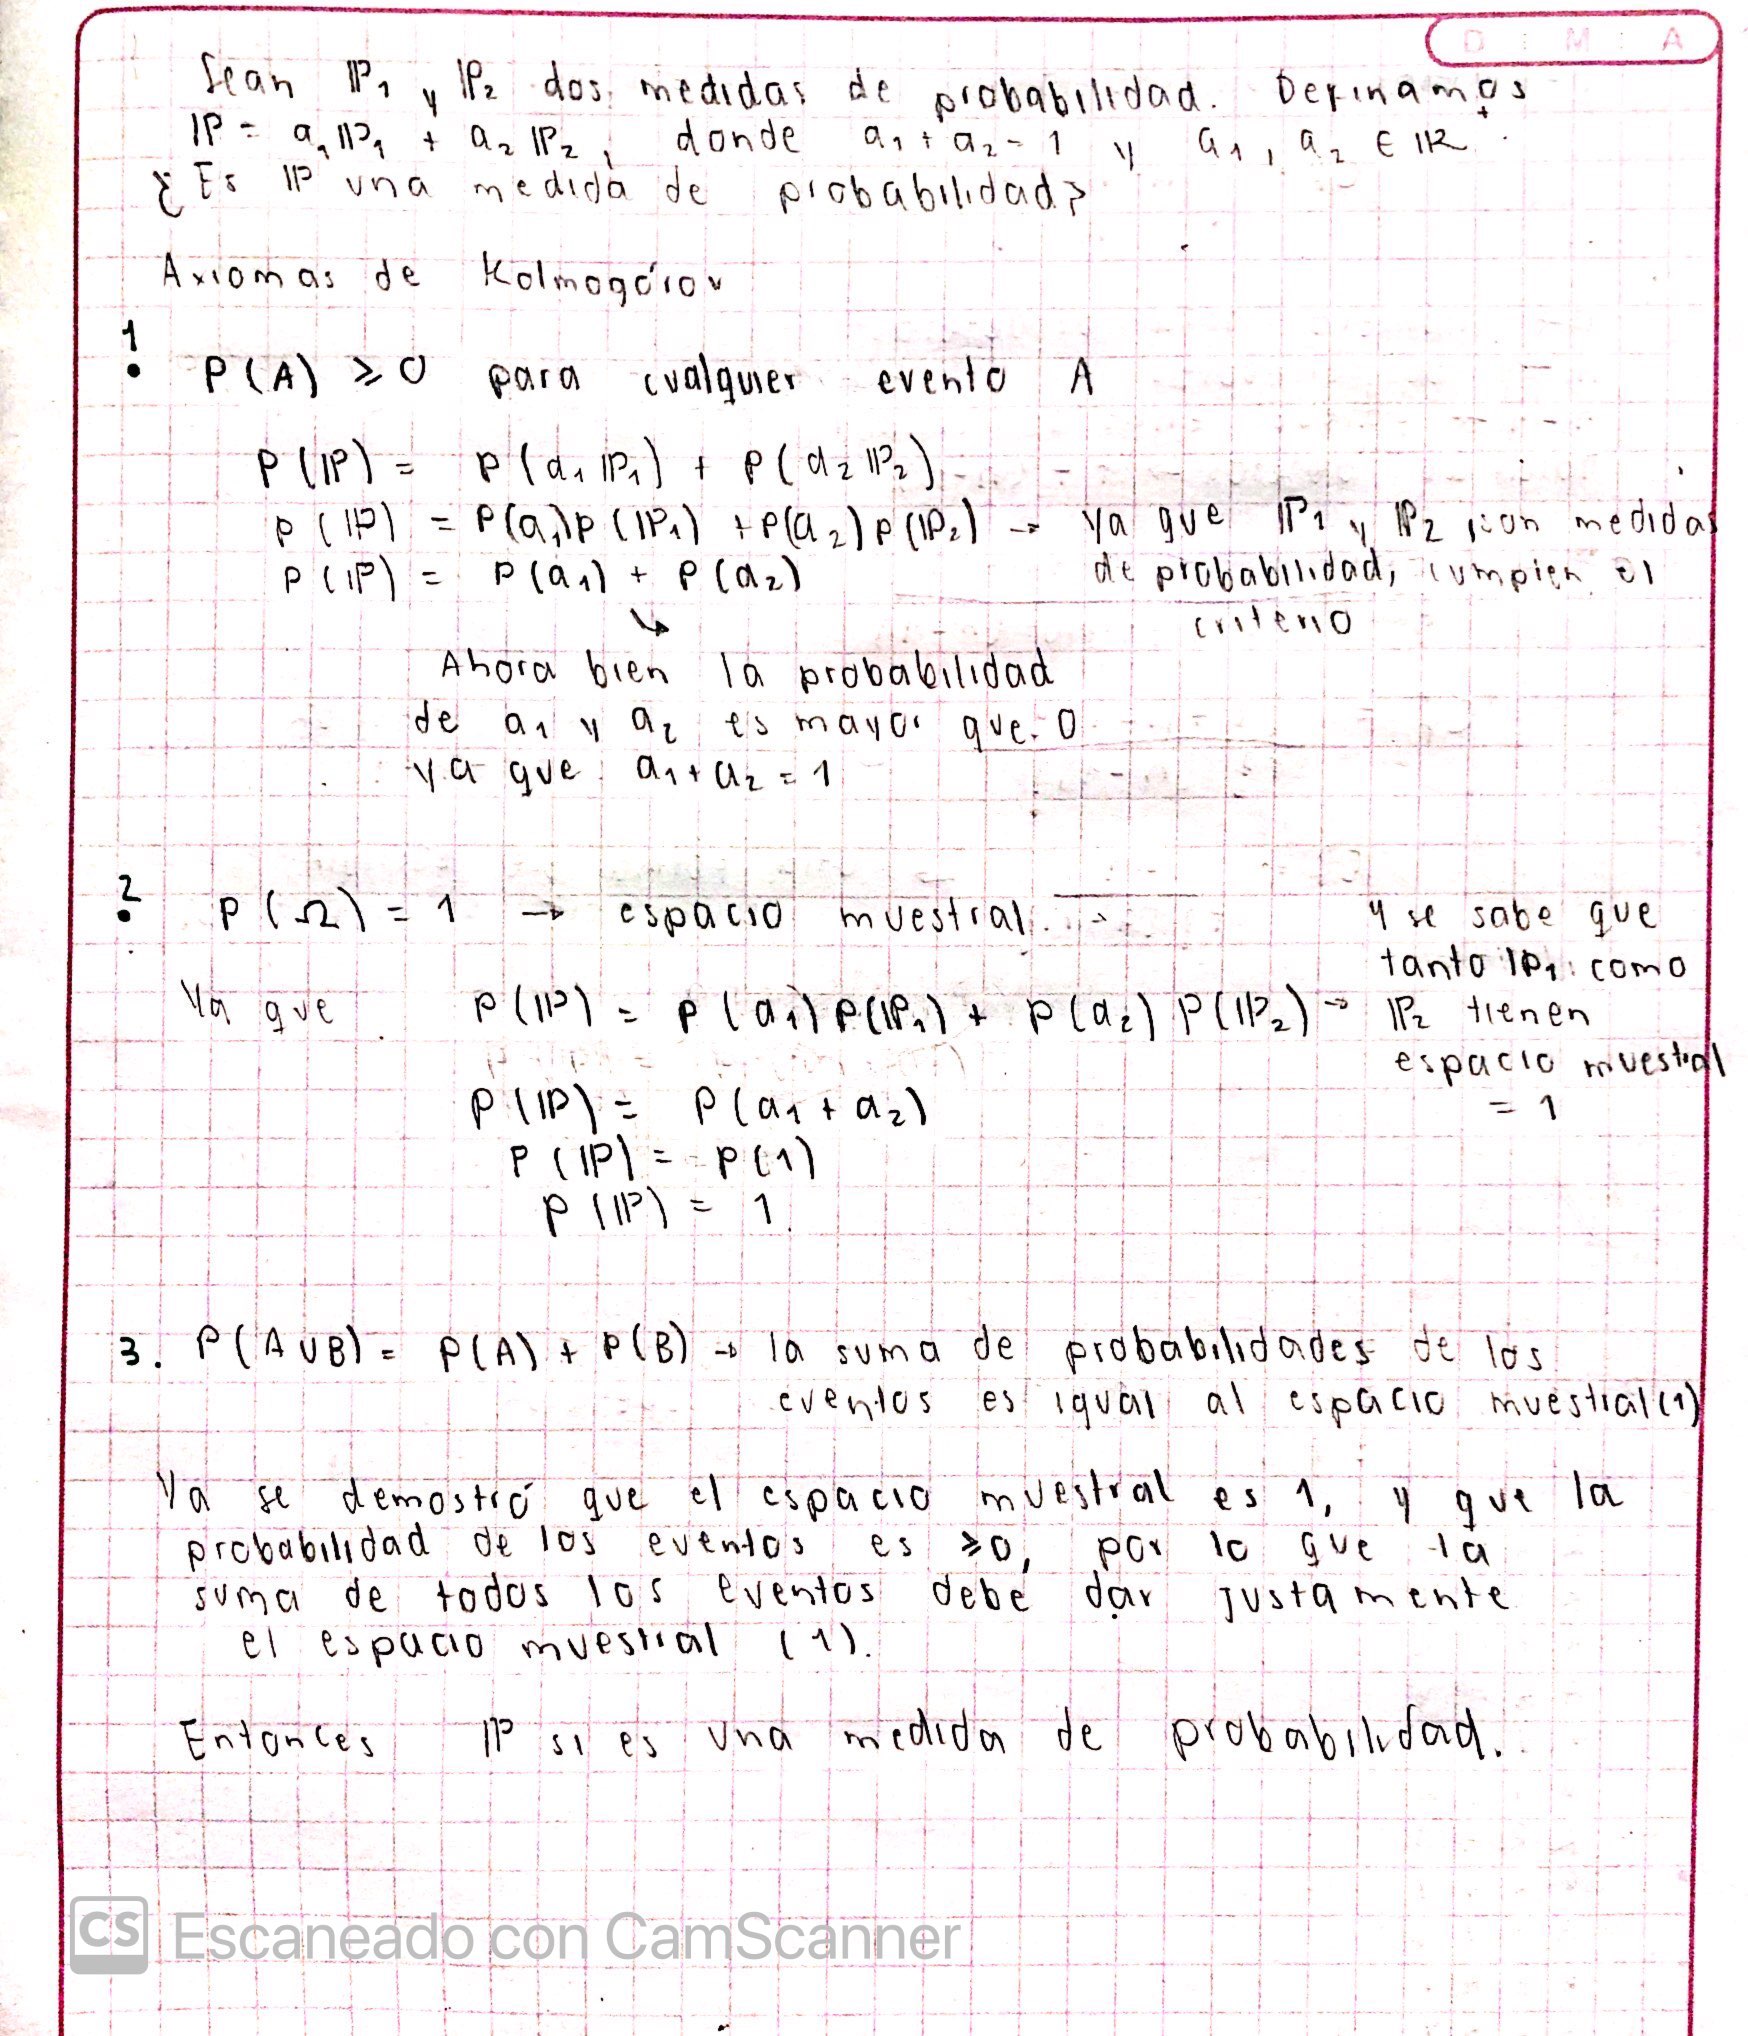 D M A
Sean ℙ₁ y ℙ₂ dos medidas de probabilidad. Definamos
ℙ = a₁ℙ₁ + a₂ℙ₂, donde a₁ + a₂ = 1 y a₁, a₂ ∈ ℝ⁺.
¿Es ℙ una medida de probabilidad?
Axiomas de Kolmogórov
1. P(A) ≥ 0 para cualquier evento A
P(ℙ) = P(a₁ℙ₁) + P(a₂ℙ₂)
P(ℙ) = P(a₁)P(ℙ₁) + P(a₂)P(ℙ₂) → Ya que ℙ₁ y ℙ₂ son medidas
de probabilidad, cumplen el
criterio
P(ℙ) = P(a₁) + P(a₂)
↳
Ahora bien la probabilidad
de a₁ y a₂ es mayor que 0
ya que a₁ + a₂ = 1
2. P(Ω) = 1 → espacio muestral
Ya que P(ℙ) = P(a₁)P(ℙ₁) + P(a₂)P(ℙ₂) →
y se sabe que
tanto ℙ₁ como
ℙ₂ tienen
espacio muestral
= 1
P(ℙ) = P(a₁ + a₂)
P(ℙ) = P(1)
P(ℙ) = 1
3. P(A∪B) = P(A) + P(B) → la suma de probabilidades de los
eventos es igual al espacio muestral (1)
Ya se demostró que el espacio muestral es 1, y que la
probabilidad de los eventos es ≥0, por lo que la
suma de todos los eventos debe dar justamente
el espacio muestral (1).
Entonces ℙ si es una medida de probabilidad.
CS Escaneado con CamScanner